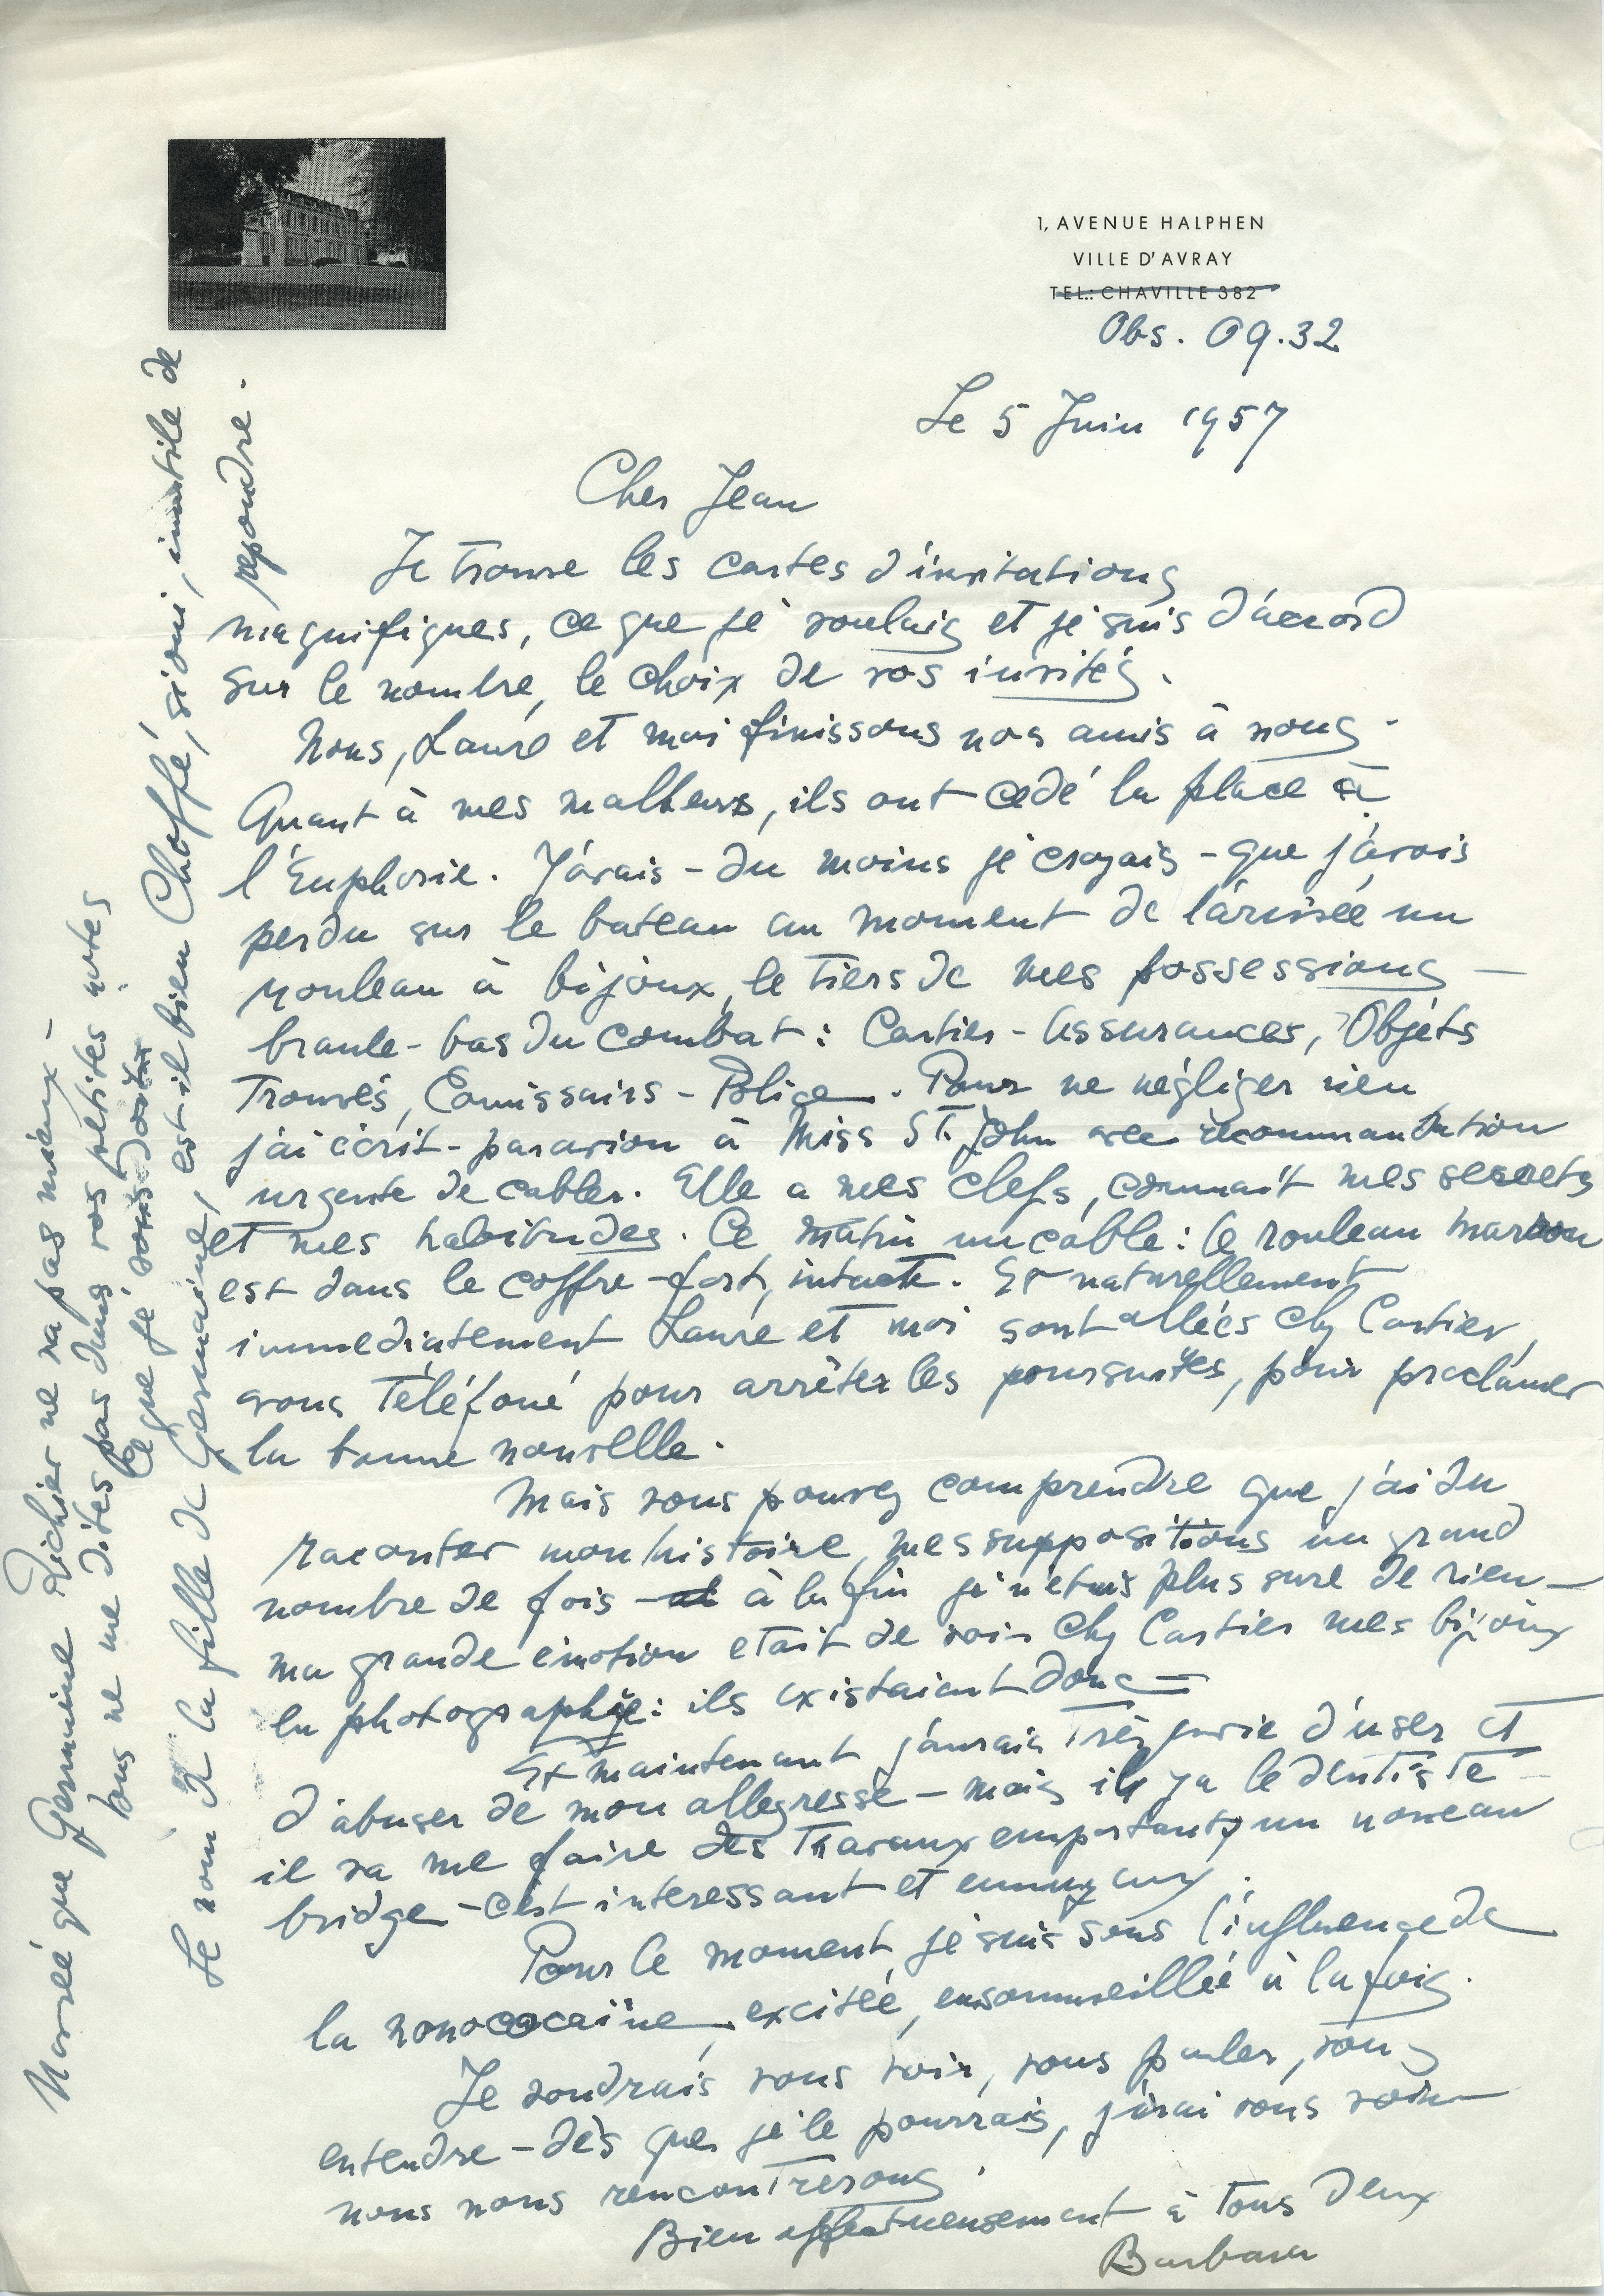 1, AVENUE HALPHEN
VILLE D'AVRAY
TEL.: CHAVILLE 382
Obs. 09.32
Le 5 Juin 1957
Cher Jean
Je trouve les cartes d'invitations
magnifiques, ce que je voulais et je suis d'accord
sur le nombre, le choix de vos invités.
Nous, Laure et moi finissons nos amis à nous.
Quant à mes malheurs, ils ont cedé la place à
l'Euphorie. J'avais - du moins je croyais - que j'avois
perdu sur le bateau au moment de l'arrivée un
rouleau à bijoux, le tiers de mes possessions —
branle-bas du combat : Cartier - Assurances, Objets
Trouvés, Comissairs - Police. Pour ne négliger rien
j'ai écrit - par avion à Miss St. John avec recommandation
urgente de cabler. Elle a mes clefs, connait mes secrets
et mes habitudes. Ce matin un cable : le rouleau marron
est dans le coffre-fort, intacte. Et naturellement
immediatement Laure et moi sont allées chez Cartier,
avons téléfoné pour arrêter les poursuites, pour proclamer
la bonne nouvelle.
Mais vous pouvez comprendre que j'ai du
raconter mon histoire, mes suppositions un grand
nombre de fois — à la fin je n'etais plus sure de rien —
ma grande émotion etait de voir chez Cartier mes bijoux
la photographie : ils existaient donc —
Et maintenant j'aurais très envie d'user et
d'abuser de mon allegresse - mais il y a le dentiste —
il va me faire des travaux emportants, un noveau
bridge - c'est interessant et ennuyeux.
Pour le moment je suis sous l'influence de
la novocaïne, excitée, ensommeillée à la fois.
Je voudrais vous voir, vous parler, vous
entendre - dès que je le pourrais, j'irai vous voir
nous nous rencontrerons.
Bien affectueusement à tous deux
Barbara
Navrée que Germaine Richier ne va pas mieux —
vous ne me dites pas dans vos petites notes
ce que je vous dois
Le nom de la fille de Germaine, est-il bien Choffé, si oui, inutile de
repondre.